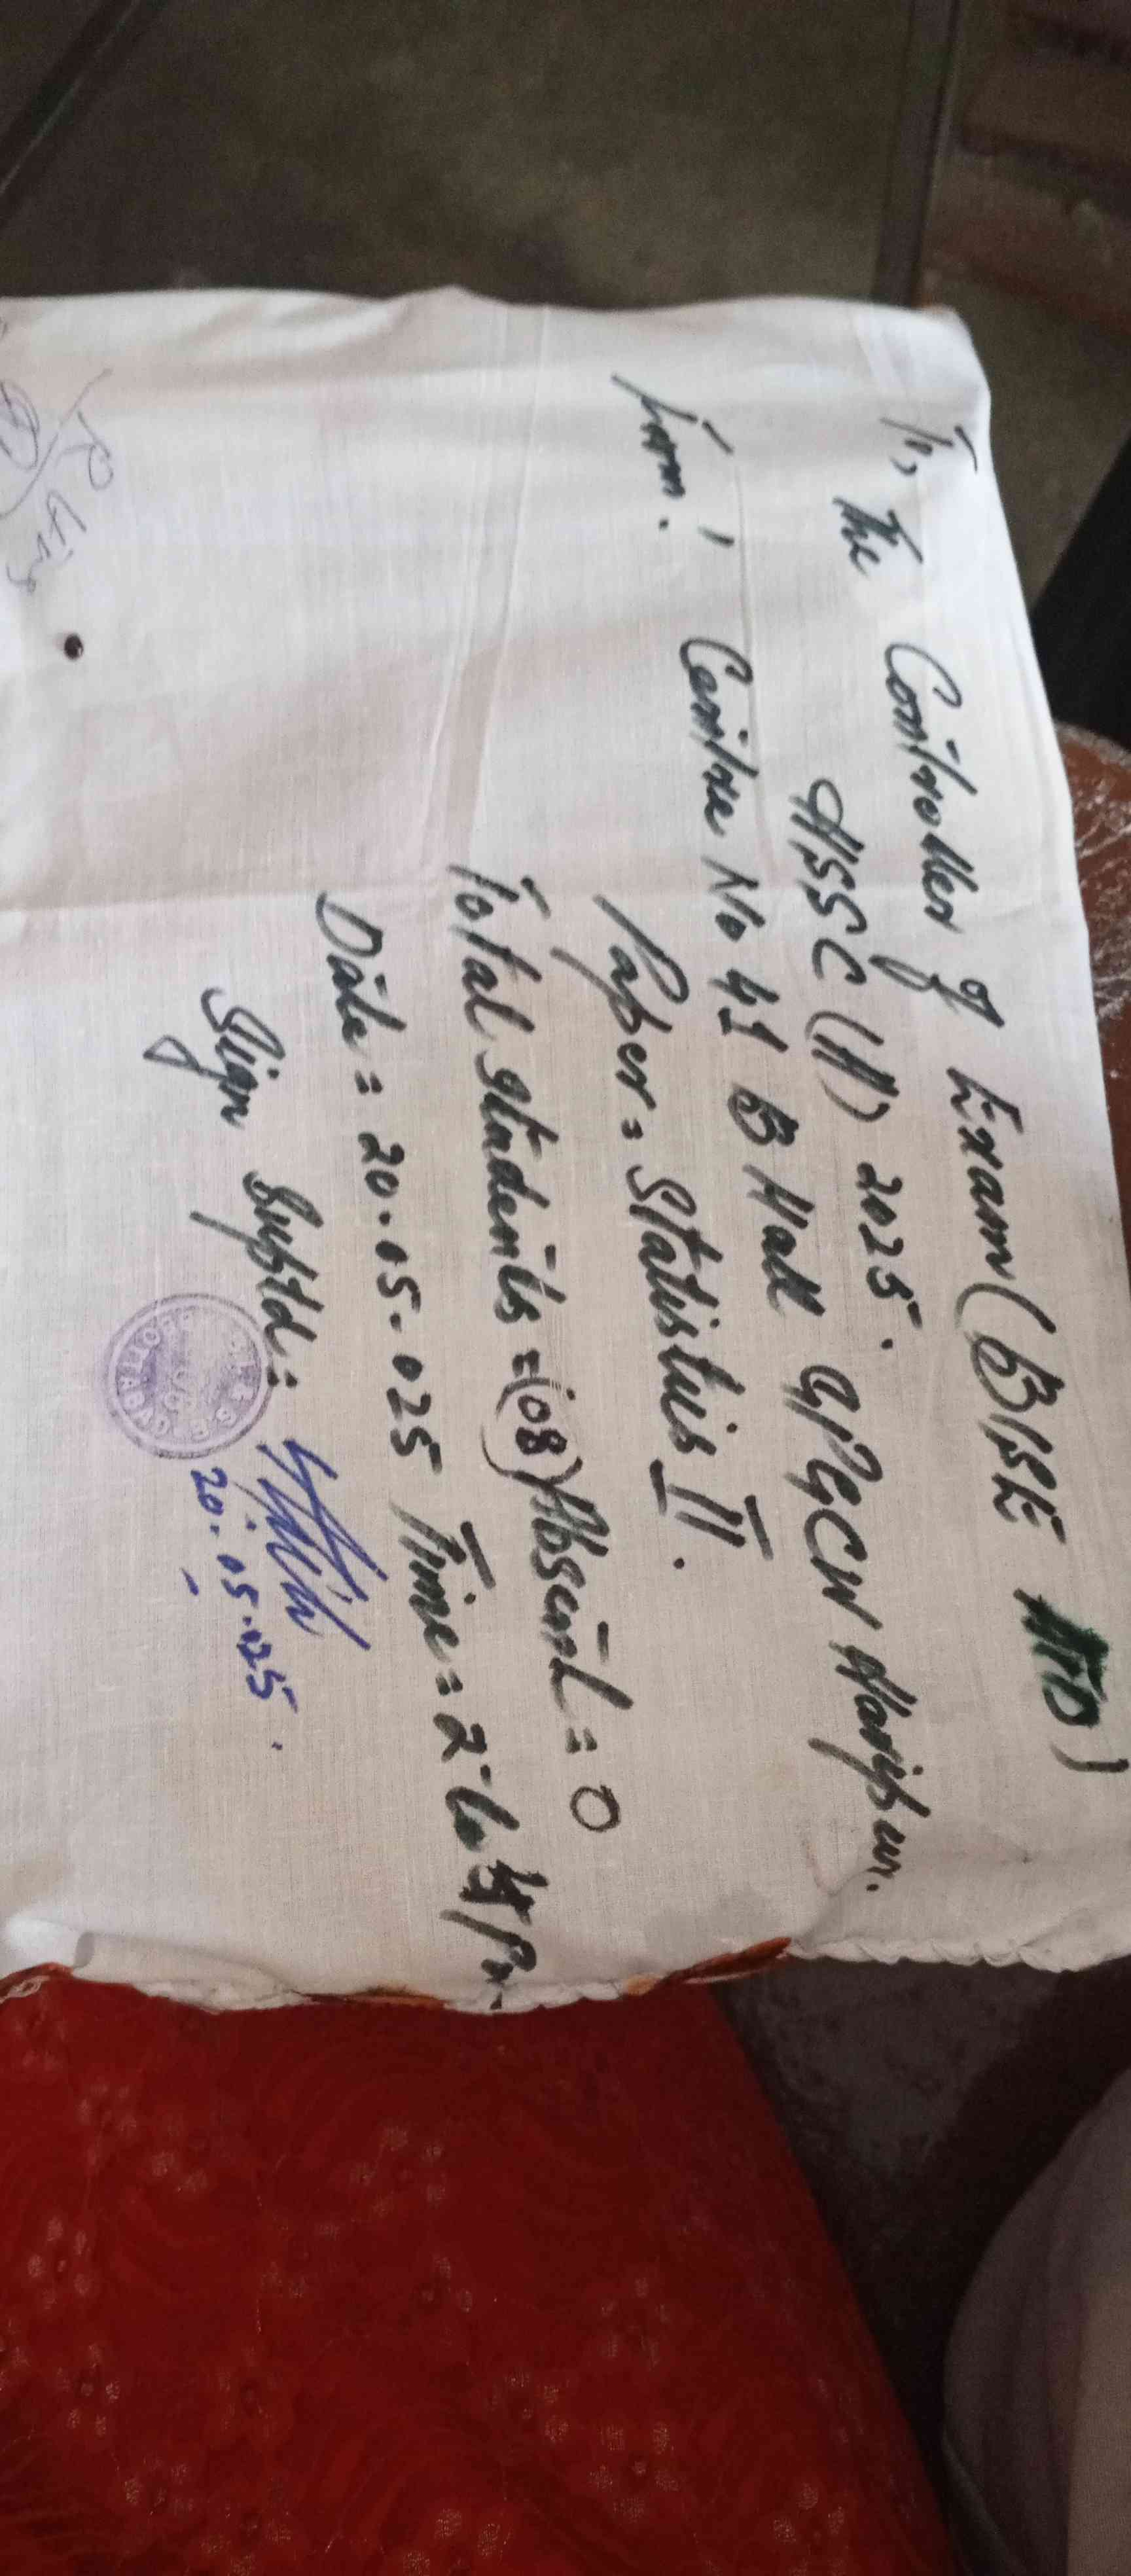 To, The Controller of Exam (BISE ATD)
HSSC (A) 2025.
From: Centre No 41 B Hall GPGCN Haripur.
Paper = Statistics II.
Total students = (08) Absent = 0
Date = 20.05.025 Time = 2 to 4 Pm
Sign Suptd:
20.05.025.